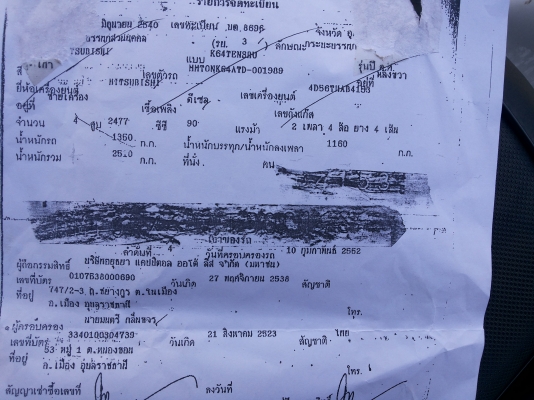 รายการจดทะเบียน
มิถุนายน 2540 เลขทะเบียน บต 8696 จังหวัด อ.
บรรทุกส่วนบุคคล (รย. 3 ) ลักษณะ กระบะบรรทุก
แบบ K64TENSRU รุ่นปี ค.ศ.
สี เทา เลขตัวรถ MMTONK64ATD-001989
ยี่ห้อเครื่องยนต์ MITSUBISHI เลขเครื่องยนต์
อยู่ที่ ซ้ายเครื่อง เชื้อเพลิง ดีเซล เลขถังแก๊ส
จำนวน 4 สูบ 2477 ซีซี 90 แรงม้า 2 เพลา 4 ล้อ ยาง 4 เส้น
น้ำหนักรถ 1350 ก.ก. น้ำหนักบรรทุก/น้ำหนักลงเพลา 1160 ก.ก.
น้ำหนักรวม 2510 ก.ก. ที่นั่ง คน
เจ้าของรถ
ลำดับที่ 4 วันที่ครอบครองรถ 10 กุมภาพันธ์ 2552
ผู้ถือกรรมสิทธิ์ บริษัทอยุธยา แคปปิตอล ออโต้ ลีส จำกัด (มหาชน)
เลขที่บัตร 0107538000690 วันเกิด 27 พฤศจิกายน 2538 สัญชาติ
ที่อยู่ 747/2-3 ถ.ชยางกูร ต.ในเมือง
อ.เมือง อุบลราชธานี โทร.
ผู้ครอบครอง นายมนตรี กลิ่นขจร
เลขที่บัตร 3340100304739 วันเกิด 21 สิงหาคม 2523 สัญชาติ ไทย
ที่อยู่ 53 หมู่ 1 ต.หนองขอน
อ.เมือง อุบลราชธานี โทร.
สัญญาเช่าซื้อเลขที่ ลงวันที่